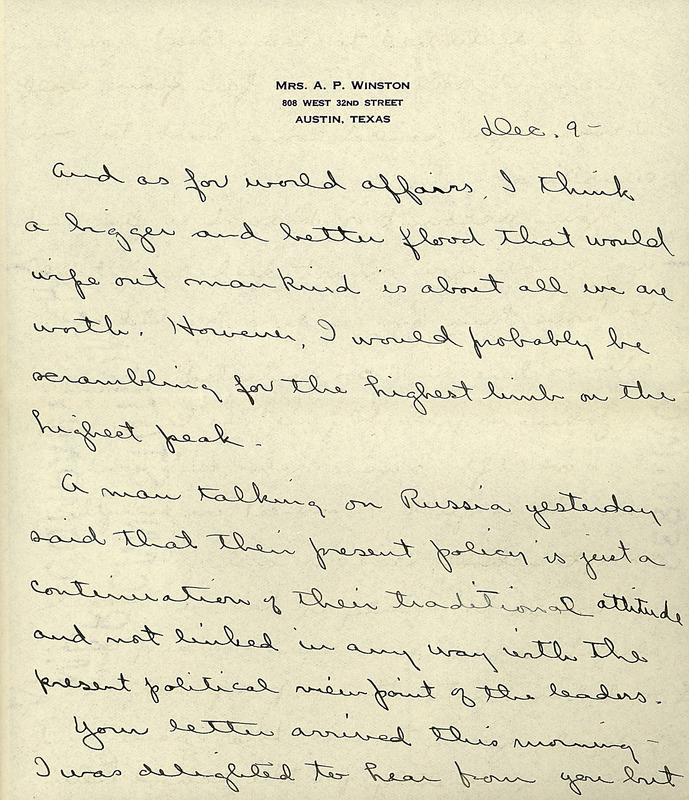 MRS. A. P. WINSTON
808 WEST 32ND STREET
AUSTIN, TEXAS
Dec. 9-
And as for world affairs, I think
a bigger and better flood that would
wipe out mankind is about all we are
worth. However, I would probably be
scrambling for the highest limb on the
highest peak.
A man talking on Russia yesterday
said that their present policy is just a
continuation of their traditional attitude
and not linked in any way with the
present political viewpoint of the leaders.
Your letter arrived this morning-
I was delighted to hear from you but